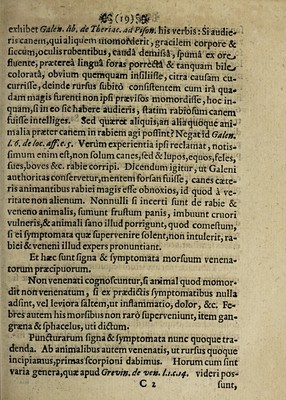 (19)
exhibet Galen. lib. de Theriac. ad Pison. his verbis: Si audie-
ris canem, qui aliquem momorderit, gracilem corpore &
siccum, oculis rubentibus, cauda demissa, spuma ex ore
fluente, præterea lingua foras porrecta & tanquam bile
colorata, obvium quemquam insiliisse, citra causam cu-
currisse, deinde rursus subito consistentem cum ira qua-
dam magis furenti non ipsi prævios momordisse, hoc in-
quam, si in eo sic habere audieris, statim rabiosum canem
fuisse intelliges. Sed quæret aliquis, an alia quoque ani-
malia præter canem in rabiem agi possint? Negat id Galen.
l. 6. de loc. aff. c. 5. Verum experientia ipsi reclamat, notis-
simum enim est, non solum canes, sed & lupos, equos, feles,
sues, boves &c. rabie corripi. Dicendum igitur, ut Galeni
authoritas conservetur, mentem forsan fuisse, canes cæte-
ris animantibus rabiei magis esse obnoxios, id quod à ve-
ritate non alienum. Nonnulli si incerti sunt de rabie &
veneno animalis, sumunt frustum panis, imbuunt cruori
vulneris, & animali sano illud porrigunt, quod comestum,
si ei symptomata quæ supervenire solent, non intulerit, ra-
biei & veneni illud expers pronuntiant.
Et hæc sunt signa & symptomata morsuum venena-
torum præcipuorum.
Non venenati cognoscuntur, si animal quod momor-
dit non venenatum, si ex prædictis symptomatibus nulla
adsint, vel leviora saltem, ut inflammatio, dolor, &c. Fe-
bres autem his morsibus non rarò superveniunt, item gan-
græna & sphacelus, uti dictum.
Puncturarum signa & symptomata nunc quoque tra-
denda. Ab animalibus autem venenatis, ut rursus quoque
incipiamus, primas scorpioni dabimus. Horum cum sint
varia genera, quæ apud Grevin. de ven. l. 1. c. 14. videri pos-
C 2
sunt,